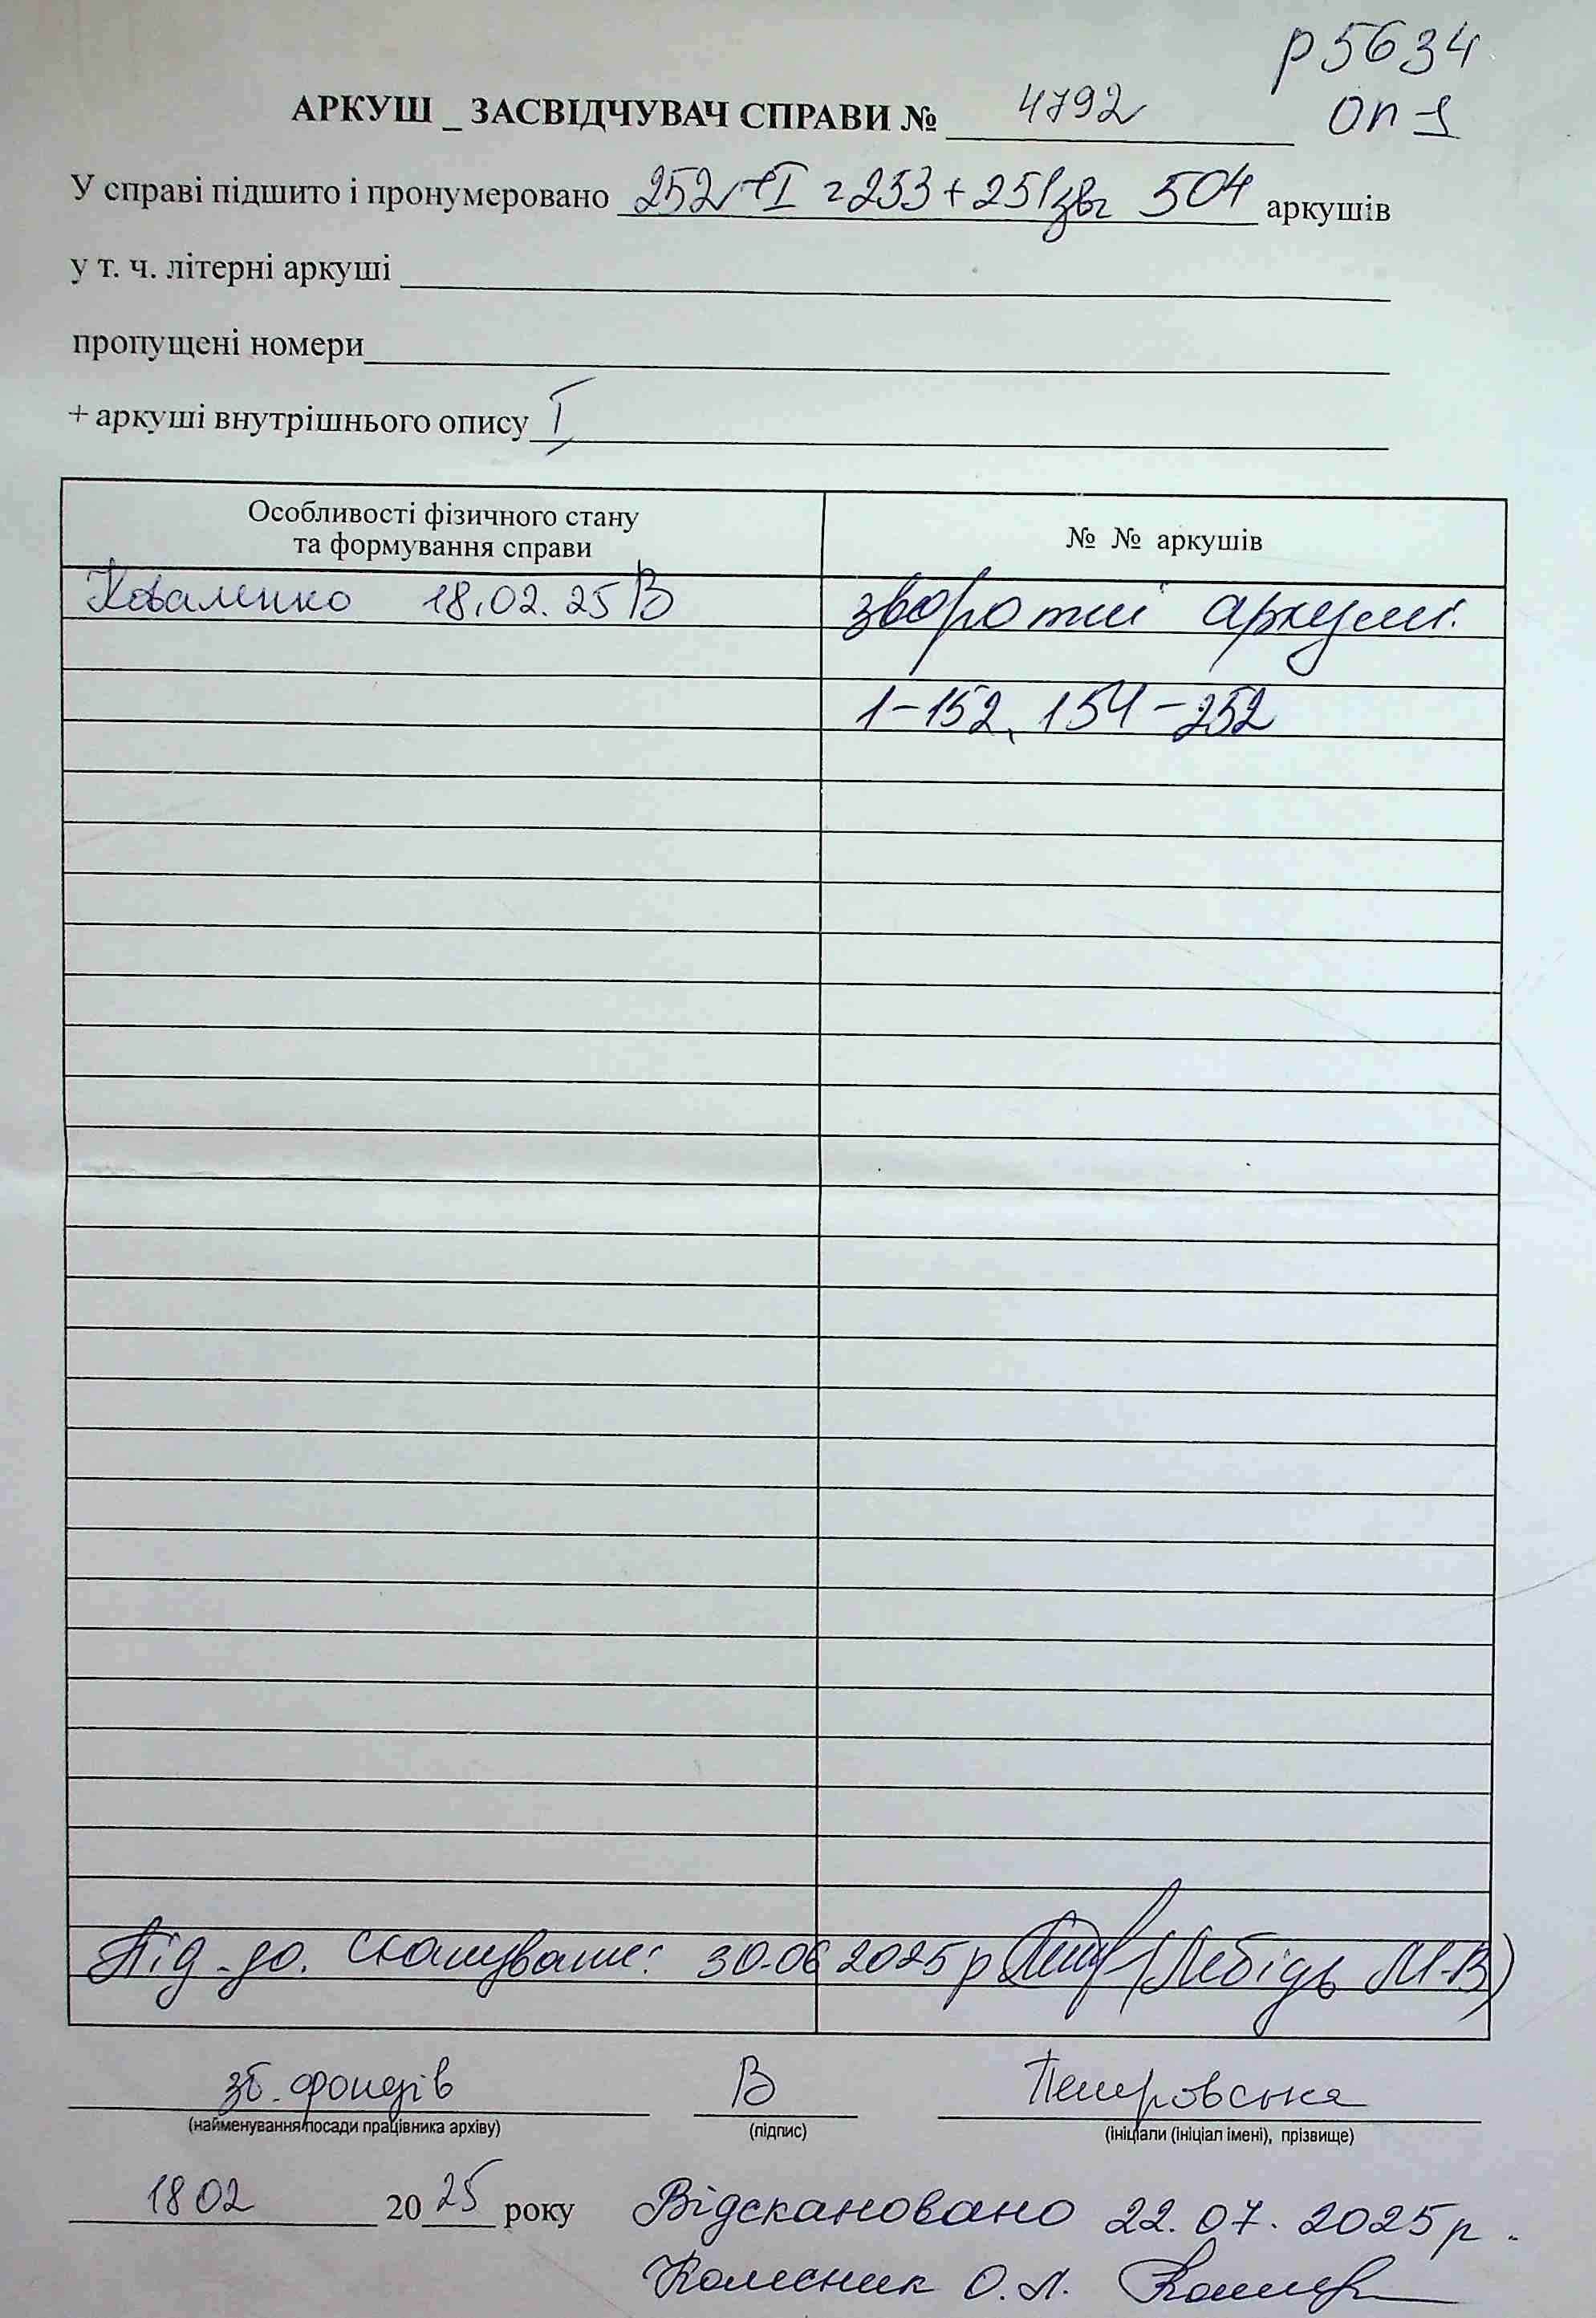 р5634
АРКУШ _ ЗАСВІДЧУВАЧ СПРАВИ № 4792 оп-1
У справі підшито і пронумеровано 252+I=253+251зв= 504 аркушів
у т. ч. літерні аркуші
пропущені номери
+ аркуші внутрішнього опису I
Особливості фізичного стану та формування справи
№ № аркушів
Коваленко 18.02.25 В
зворотні аркуші:
1-152, 154-252
Під-до. сканування: 30.06 2025р (Лебідь М.В)
зб. фондів В Петровська
(найменування посади працівника архіву) (підпис) (ініціали (ініціал імені), прізвище)
18 02 2025 року Відскановано 22.07.2025р.
Колесник О.Л.